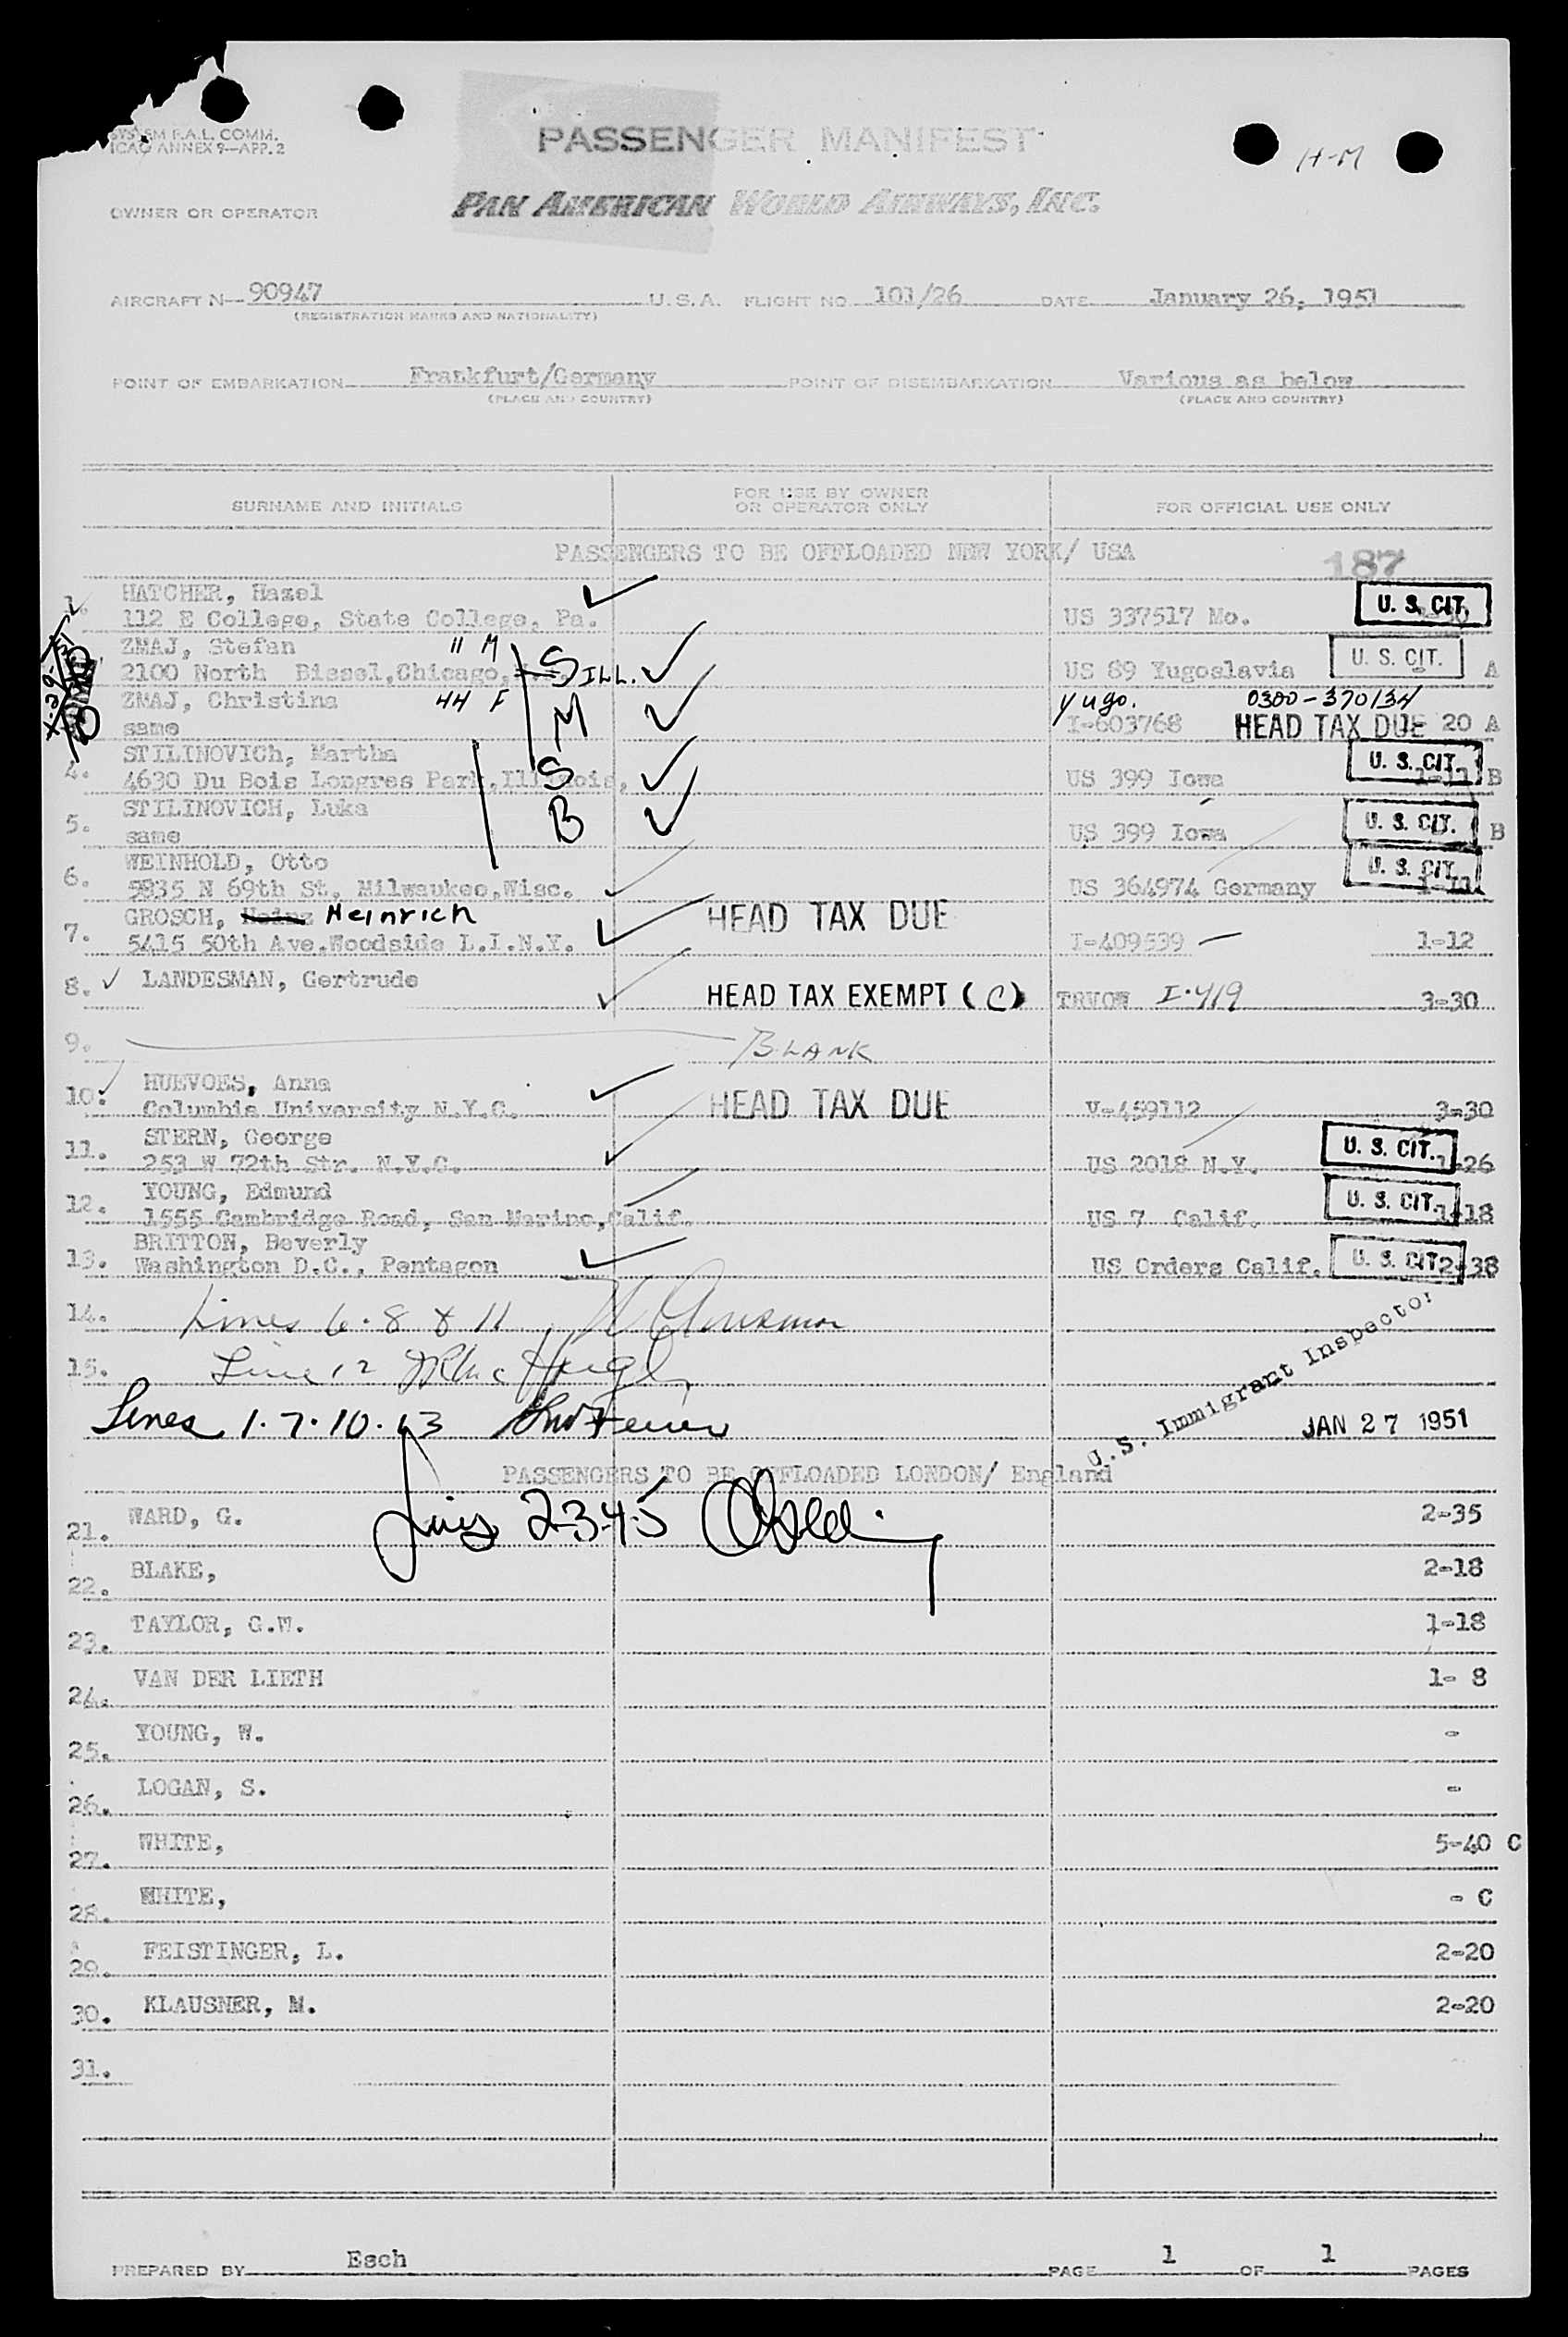 SYSTEM F.A.L. COMM.
ICAO ANNEX 9—APP. 2
PASSENGER MANIFEST
H-M
OWNER OR OPERATOR PAN AMERICAN WORLD AIRWAYS, INC.
AIRCRAFT N— 90947 U. S. A. FLIGHT NO. 101/26 DATE January 26, 1951
(REGISTRATION MARKS AND NATIONALITY)
POINT OF EMBARKATION Frankfurt/Germany POINT OF DISEMBARKATION Various as below
(PLACE AND COUNTRY) (PLACE AND COUNTRY)
SURNAME AND INITIALS FOR USE BY OWNER OR OPERATOR ONLY FOR OFFICIAL USE ONLY
PASSENGERS TO BE OFFLOADED NEW YORK/ USA
187
1. HATCHER, Hazel
112 E College, State College, Pa. US 337517 Mo. U. S. CIT.
ZMAJ, Stefan 11 M
2100 North Bissel, Chicago, ILL. S US 89 Yugoslavia U. S. CIT. A
ZMAJ, Christina 44 F M yugo. 0300-370134
same I-603768 HEAD TAX DUE 20 A
STILINOVICh, Martha
4. 4630 Du Bois Longres Park, Illinois, S US 399 Iowa U. S. CIT. 1-11 B
STILINOVICH, Luka
5. same B US 399 Iowa U. S. CIT. B
WEINHOLD, Otto
6. 5835 N 69th St. Milwaukee, Wisc. US 364974 Germany U. S. CIT.
GROSCH, Heinrich
7. 5415 50th Ave. Woodside L.I.N.Y. HEAD TAX DUE I-409539 1-12
8. LANDESMAN, Gertrude HEAD TAX EXEMPT (C) TRVOW I-419 3-30
9. BLANK
HUEVOES, Anna
10. Columbia University N.Y.C. HEAD TAX DUE V-459112 3-30
STERN, George
11. 253 W 72th Str. N.Y.C. US 2018 N.Y. U. S. CIT. 1-26
YOUNG, Edmund
12. 1555 Cambridge Road, San Marino, Calif. US 7 Calif. U. S. CIT. 1-18
BRITTON, Beverly
13. Washington D.C., Pentagon US Orders Calif. U. S. CIT. 2-38
14. Lines 6 · 8 & 11
15. Line 12
Lines 1 · 7 · 10 · 13
U.S. Immigrant Inspector
JAN 27 1951
PASSENGERS TO BE OFFLOADED LONDON/ England
21. WARD, G. 2-3-4-5 2-35
22. BLAKE, 2-18
23. TAYLOR, G.W. 1-18
24. VAN DER LIETH 1- 8
25. YOUNG, W. -
26. LOGAN, S. -
27. WHITE, 5-40 C
28. WHITE, - C
29. FEISTINGER, L. 2-20
30. KLAUSNER, M. 2-20
31.
PREPARED BY Esch PAGE 1 OF 1 PAGES